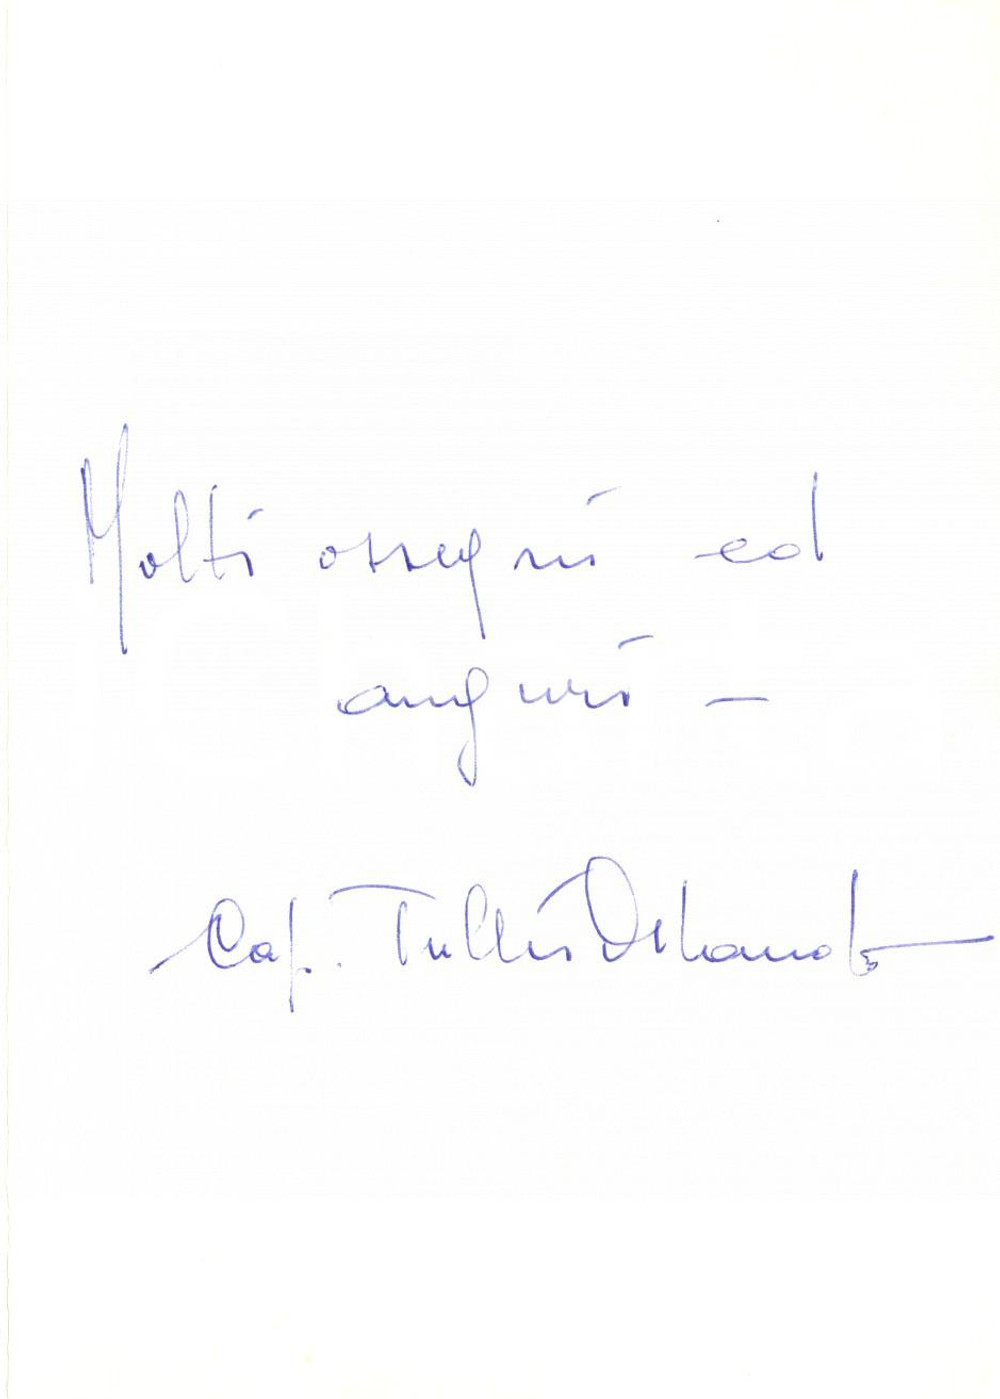 Molti ossequi ed
auguri —
Cap. Tullio